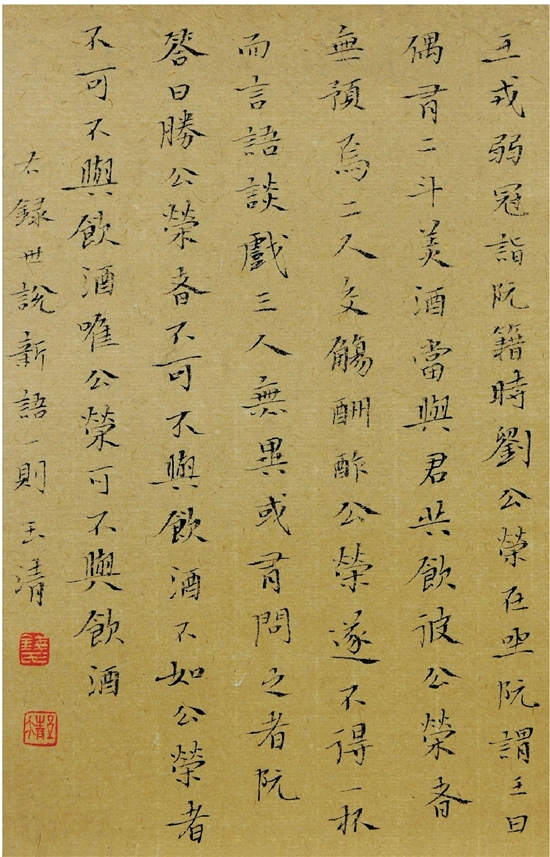 王戎弱冠詣阮籍時劉公榮在坐阮謂王曰
偶有二斗美酒當與君共飲彼公榮者
無預焉二人交觴酬酢公榮遂不得一杯
而言語談戲三人無異或有問之者阮
答曰勝公榮者不可不與飲酒不如公榮者
不可不與飲酒唯公榮可不與飲酒
右錄世說新語一則 玉清